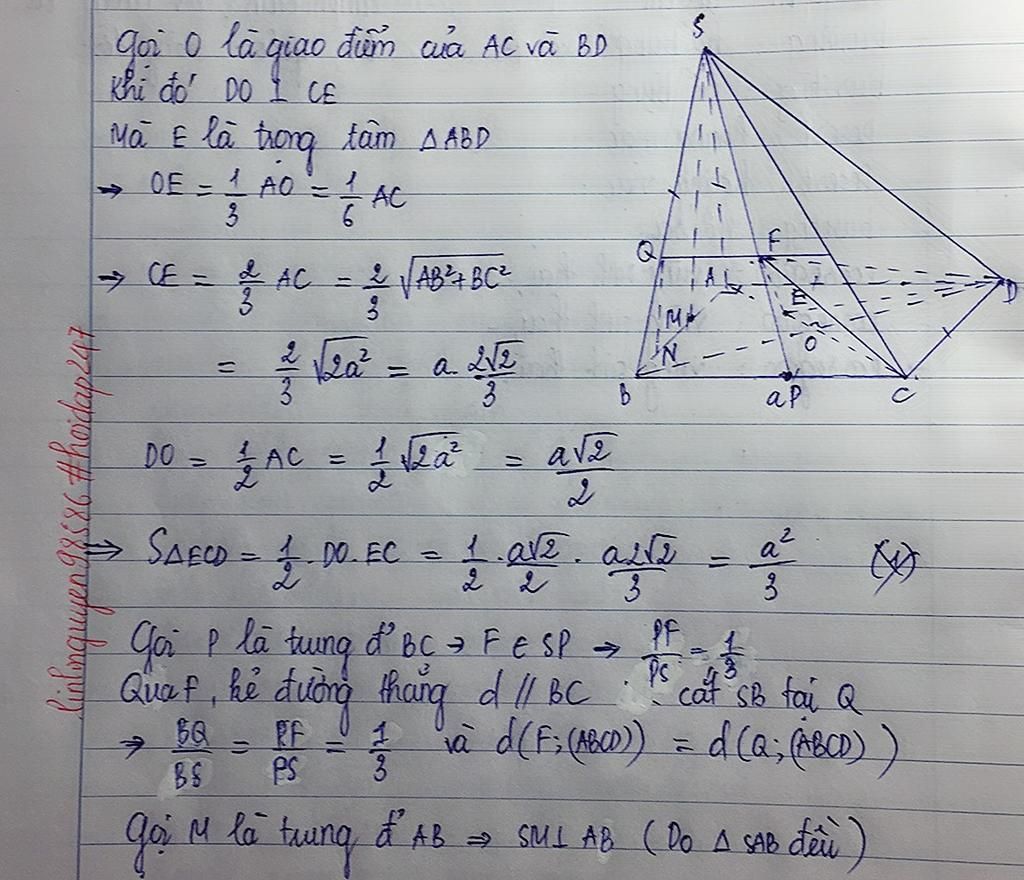 Gọi O là giao điểm của AC và BD
Khi đó DO ⊥ CE
Mà E là trọng tâm ΔABD
→ OE = 1/3 AO = 1/6 AC
→ CE = 2/3 AC = 2/3 √AB²+BC²
= 2/3 √2a² = a. 2√2/3
DO = 1/2 AC = 1/2 √2a² = a√2/2
⇒ SΔECD = 1/2 . DO. EC = 1/2 . a√2/2 . a2√2/3 = a²/3 (*)
Gọi P là trung đ' BC → F ∈ SP → PF/PS = 1/3
Qua F, kẻ đường thẳng d // BC : cắt SB tại Q
⇒ BQ/BS = PF/PS = 1/3 và d(F;(ABCD)) = d(Q;(ABCD))
Gọi M là trung đ' AB ⇒ SM⊥AB (Do Δ SAB đều)
S
Q
F
A
E
D
M
N
O
B
a
P
C
linhnguyen98586 #hoidap247